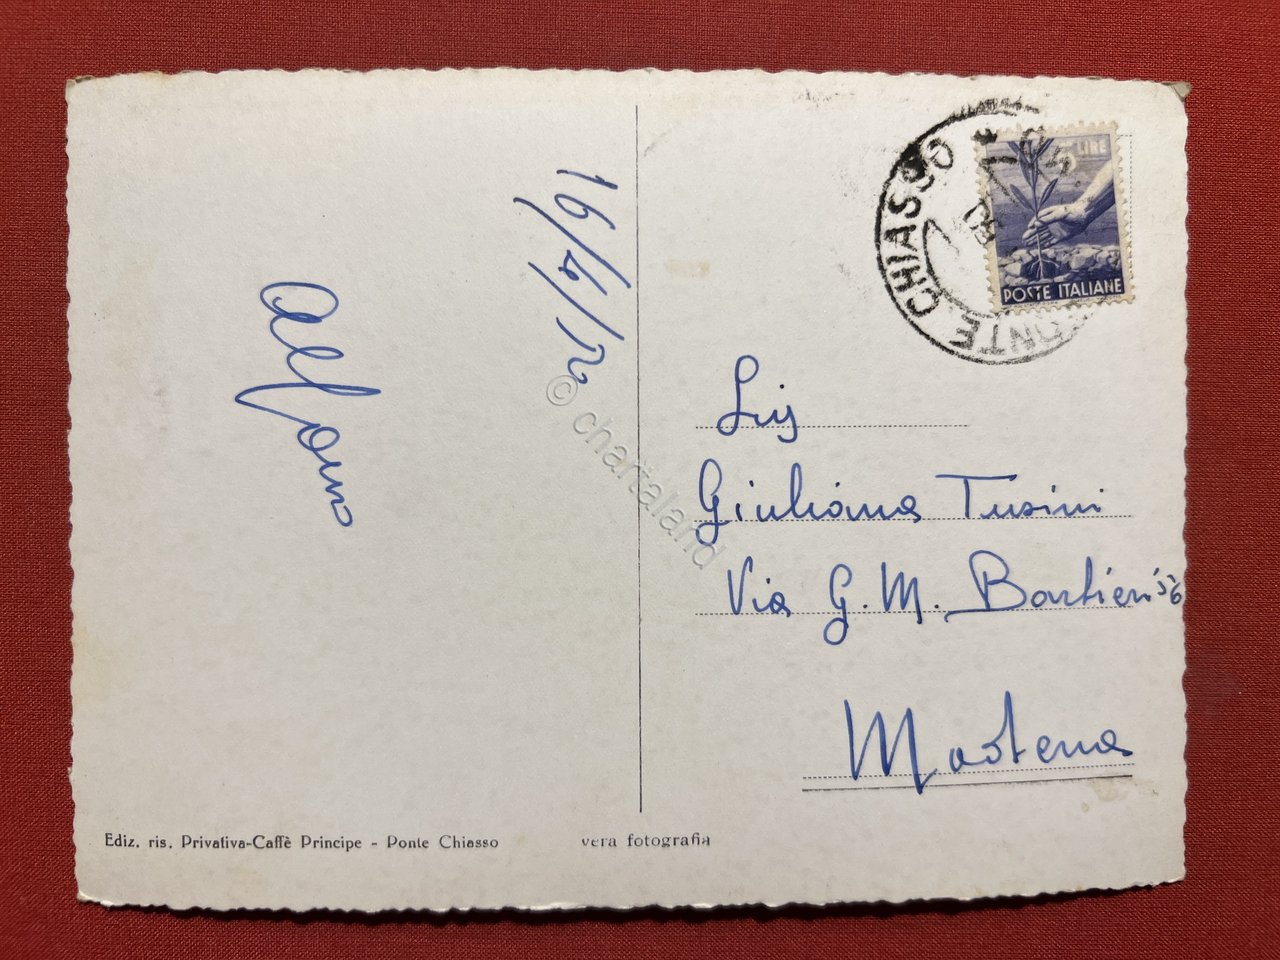 16/4/50
Alfonso
PONTE CHIASSO
LIRE
POSTE ITALIANE
Sig
Giuliana Tusini
Via G. M. Barbieri 56
Modena
© chartaland
Ediz. ris. Privativa-Caffè Principe - Ponte Chiasso
vera fotografia